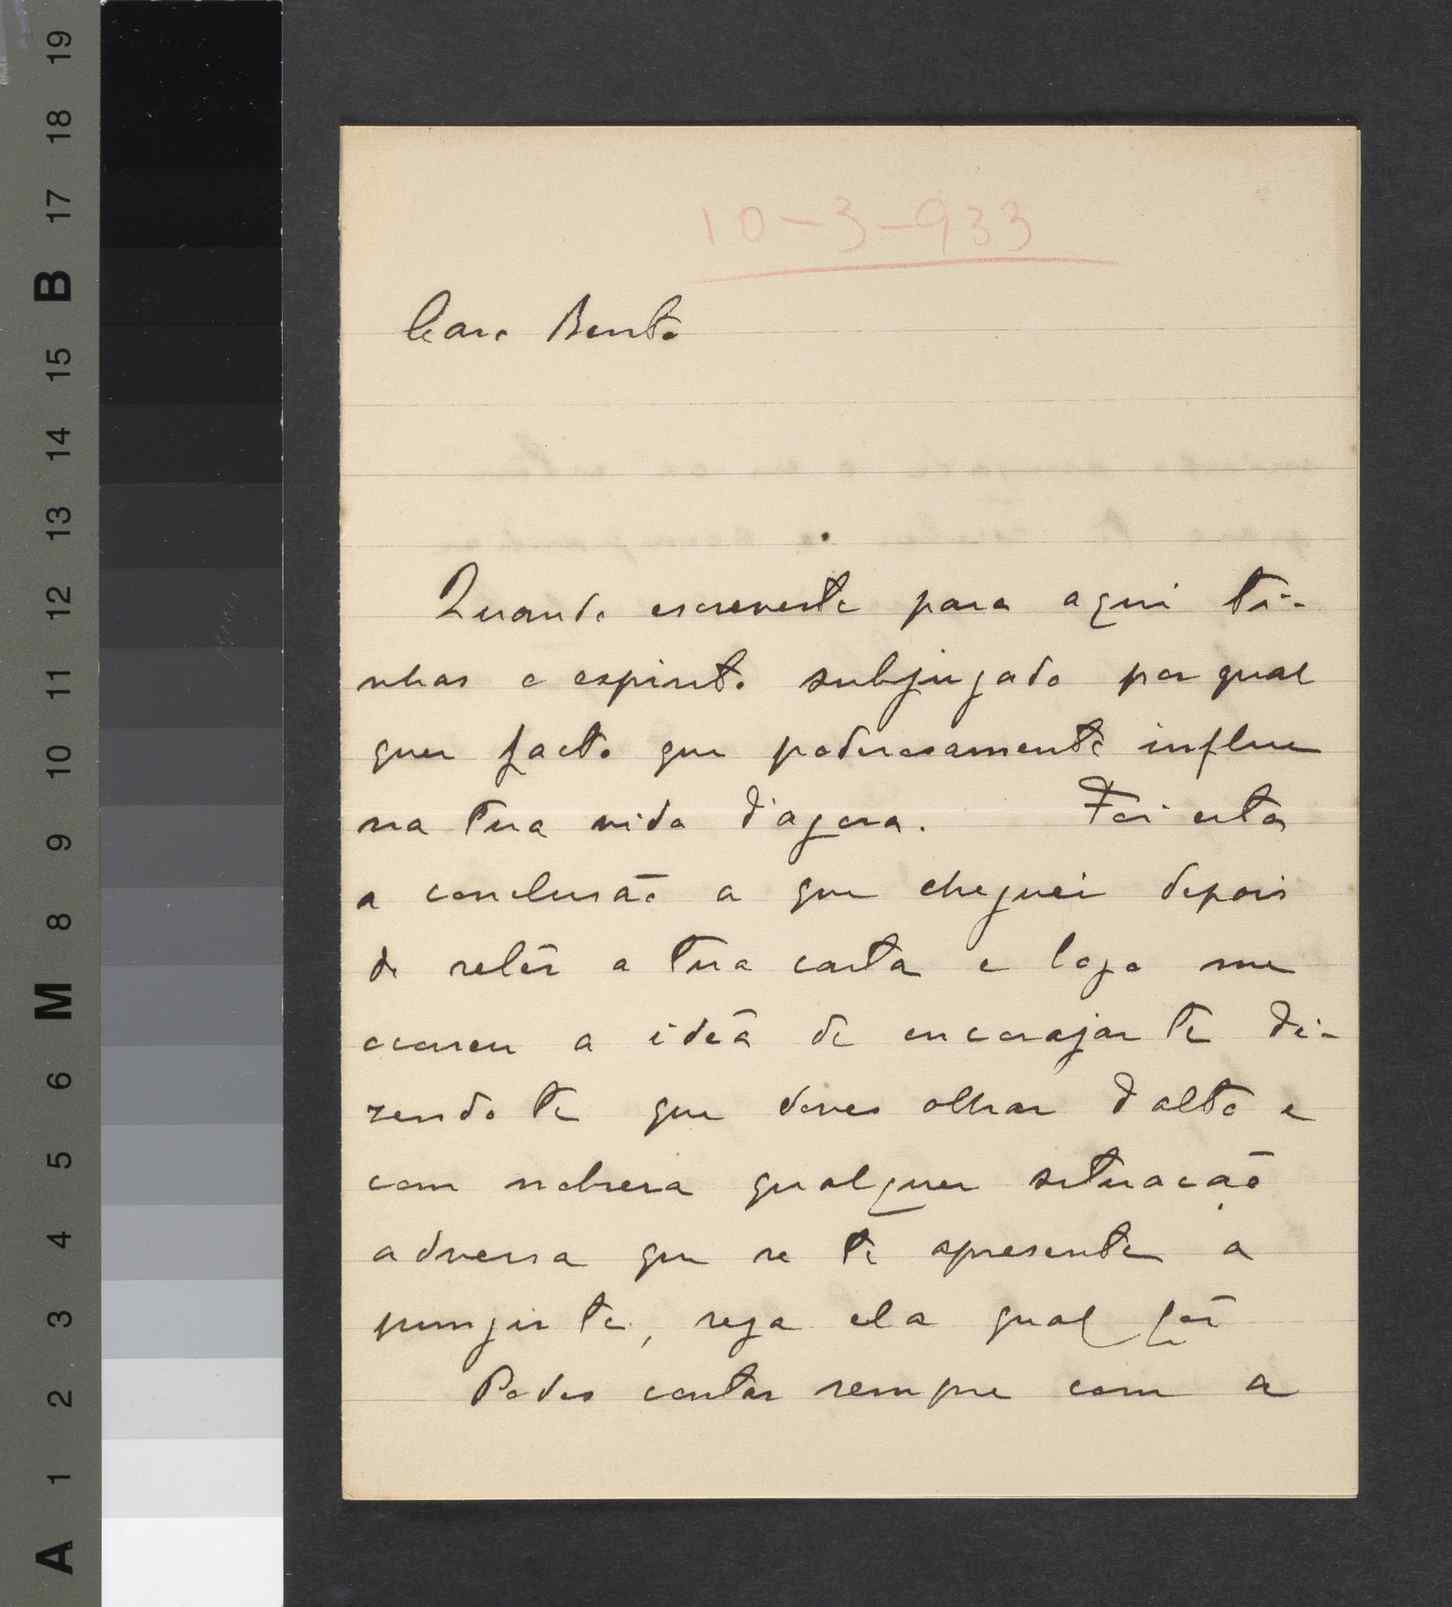 10-3-933
Caro Bento
Quando escreveste para aqui ti-
nhas o espirito subjugado por qual
quer facto que poderosamente influe
na tua vida d'agora. Foi esta
a conclusão a que cheguei depois
de relêr a tua carta e logo me
ocorreu a ideã de encorajar te di-
zendo te que deves olhar d'alto e
com nobreza qualquer situação
adversa que se te apresente a
pungir te, seja ela qual fôr
Podes contar sempre com a
19
18
17
B
15
14
13
12
11
10
9
8
M
6
5
4
3
2
1
A